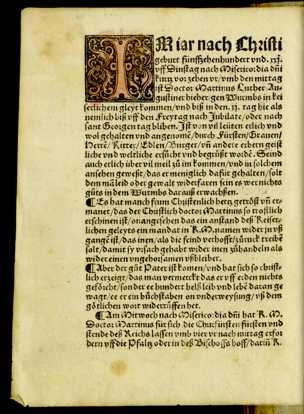 IM iar nach Christi
geburt fünffzehenhundert vnd. xxj.
vff Dinstag nach Misericordia: dia dñi
kurtz vor zehen vr/ vmb den mittag
ist Doctor Martinus Luther Au-
gustiner hieher gen Wurmbs in kei
serlichem gleyt kommen/ vnd biß in den. xi. tag hie als
nemlich biß vff den Freytag nach Jubilate/ oder nach
sant Georgen tag bliben. Ist von vil leüten erlich vnd
wol gehalten vnd angenomē/ durch Fürsten/ Grauen/
Herrē/ Ritter/ Edlen/ Burger/ vñ andere erbern geist
liche vnd weltliche ersücht vnd begrüßt wordē. Gemd
auch erlich über vil meil zů im kommen/ vnd in solchem
ansehen geweßt/ das er meniglich dafür gehalten/ solt
dem mā leid oder gewalt widerfaren sein es wer nichts
gůts in dem Wurmbs daraus erwachsen.
¶ Es hat manch frum Christenlich hertz getröst vñ er-
manet/ das der Christlich doctor Martinus so tröstlich
erschinen ist/ on angesehen das ein anstand des Keiser-
lichen gleyts ein mandat in K. M. namen wider jn vß
gangē ist/ das jnen/ als die feind verhofft/ zůruck treibē
solt/ damit sy vrsach gehabt wider jnen zů handlen als
wider einen vngehorsamen vßbleiber.
¶ Aber der gůt Pater ist komen/ vnd hat sich so christ-
lich erzeigt/ das man vermerckt das er vff erden nichts
geförcht/ sonder ee hundert helß leib vnd lebē daran ge
wagt/ ee er ein bůchstaben on vnderweysung/ vß dem
götlichen wort widerrůffen het.
¶ Am Mitwoch nach Misericordia: dia dñi hat K. M.
Doctor Martinus für sich die Churfürsten fürsten vnd
stende des Reichs lassen vmb vier vr nach mittag erfor
dern vff die Pfaltz oder in deß Bischoffs hoff/ darin K.